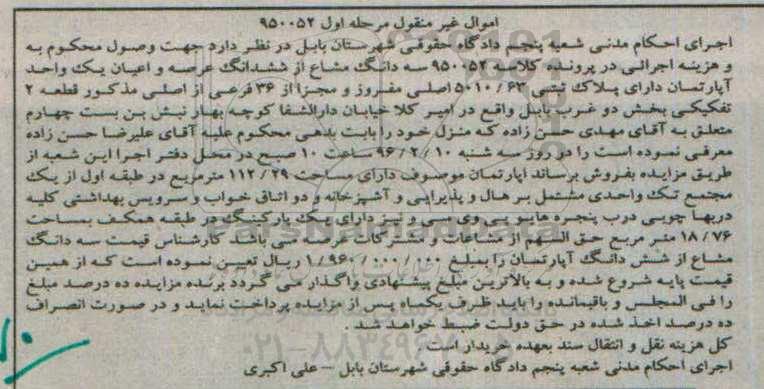 اموال غیر منقول مرحله اول ۹۵۰۰۵۲
اجرای احکام مدنی شعبه پنجم دادگاه حقوقی شهرستان بابل در نظر دارد جهت وصول محکوم به
و هزینه اجرائی در پرونده کلاسه ۹۵۰۰۵۲ سه دانگ مشاع از ششدانگ عرصه و اعیان یک واحد
آپارتمان دارای پلاک ثبتی ۵۰۱۰/۶۲ اصلی مفروز و مجزا از ۳۶ فرعی از اصلی مذکور قطعه ۲
تفکیکی بخش دو غرب بابل واقع در امیر کلا خیابان دارالشفا کوچه بهار نبش بن بست چهارم
متعلق به آقای مهدی حسن زاده که منزل خود را بابت بدهی محکوم علیه آقای علیرضا حسن زاده
معرفی نموده است را در روز سه شنبه ۹۶/۲/۱۰ ساعت ۱۰ صبح در محل دفتر اجرا این شعبه از
طریق مزایده بفروش برساند اپارتمان موصوف دارای مساحت ۱۱۲/۲۹ مترمربع در طبقه اول از یک
مجتمع تک واحدی مشتمل بر هال و پذیرایی و آشپزخانه و دو اتاق خواب و سرویس بهداشتی کلیه
دربها چوبی درب پنجره ها یو پی وی سی و نیز دارای یک پارکینگ در طبقه همکف بمساحت
۱۸/۷۶ متر مربع حق السهم از مشاعات و مشترکات عرصه می باشد کارشناس قیمت سه دانگ
مشاع از شش دانگ آپارتمان را بمبلغ ۱/۹۶۰/۰۰۰/۰۰۰ ریال تعیین نموده است که از همین
قیمت پایه شروع شده و به بالاترین مبلغ پیشنهادی واگذار می گردد برنده مزایده ده درصد مبلغ
را فی المجلس و باقیمانده را باید ظرف یکماه پس از مزایده پرداخت نماید و در صورت انصراف
ده درصد اخذ شده در حق دولت ضبط خواهد شد .
کل هزینه نقل و انتقال سند بعهده خریدار است .
اجرای احکام مدنی شعبه پنجم دادگاه حقوقی شهرستان بابل – علی اکبری
ParsNamadData
۰۲۱-۸۸۳۴۹۶۷۰